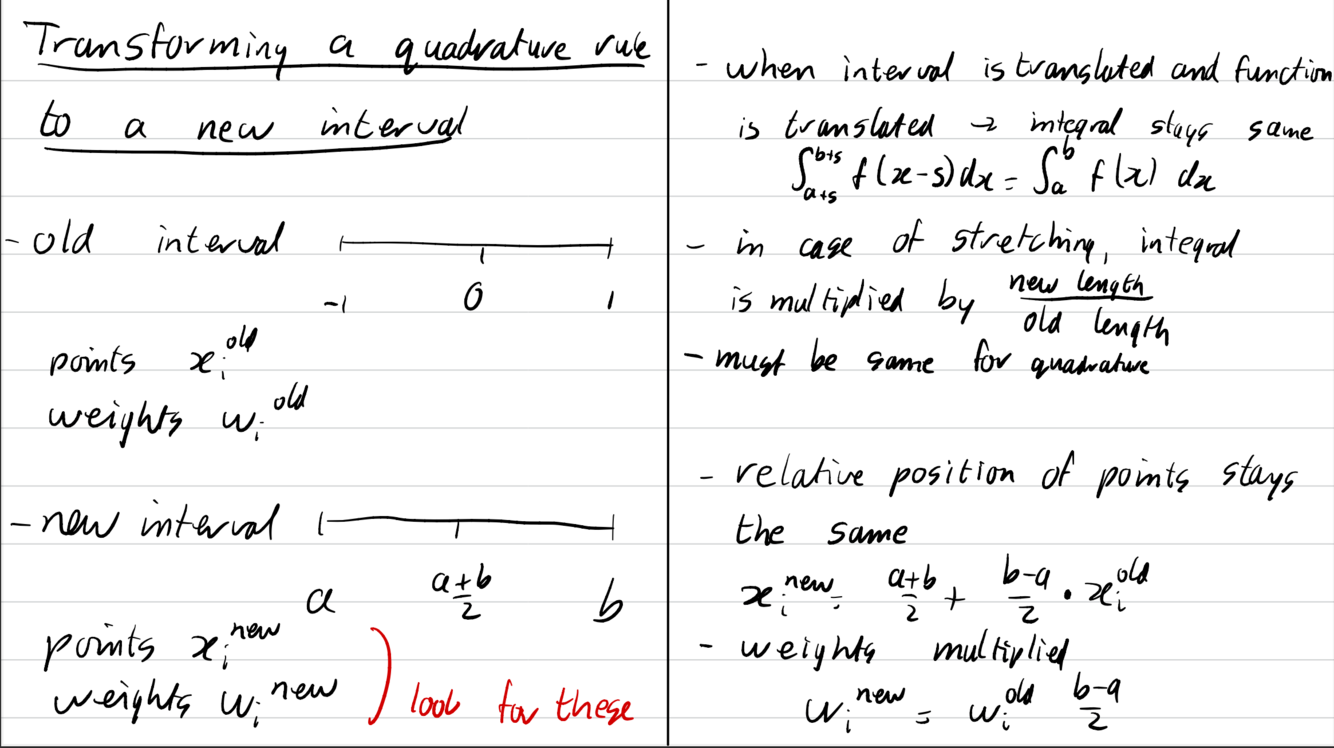 Transforming a quadrature rule
to a new interval
- old interval
-1 0 1
points x_i^old
weights w_i^old
- new interval
a (a+b)/2 b
points x_i^new
weights w_i^new
look for these
- when interval is translated and function
is translated → integral stays same
∫_{a+s}^{b+s} f(x-s)dx = ∫_a^b f(x) dx
- in case of stretching, integral
is multiplied by new length / old length
- must be same for quadrature
- relative position of points stays
the same
x_i^new = (a+b)/2 + (b-a)/2 · x_i^old
- weights multiplied
w_i^new = w_i^old (b-a)/2